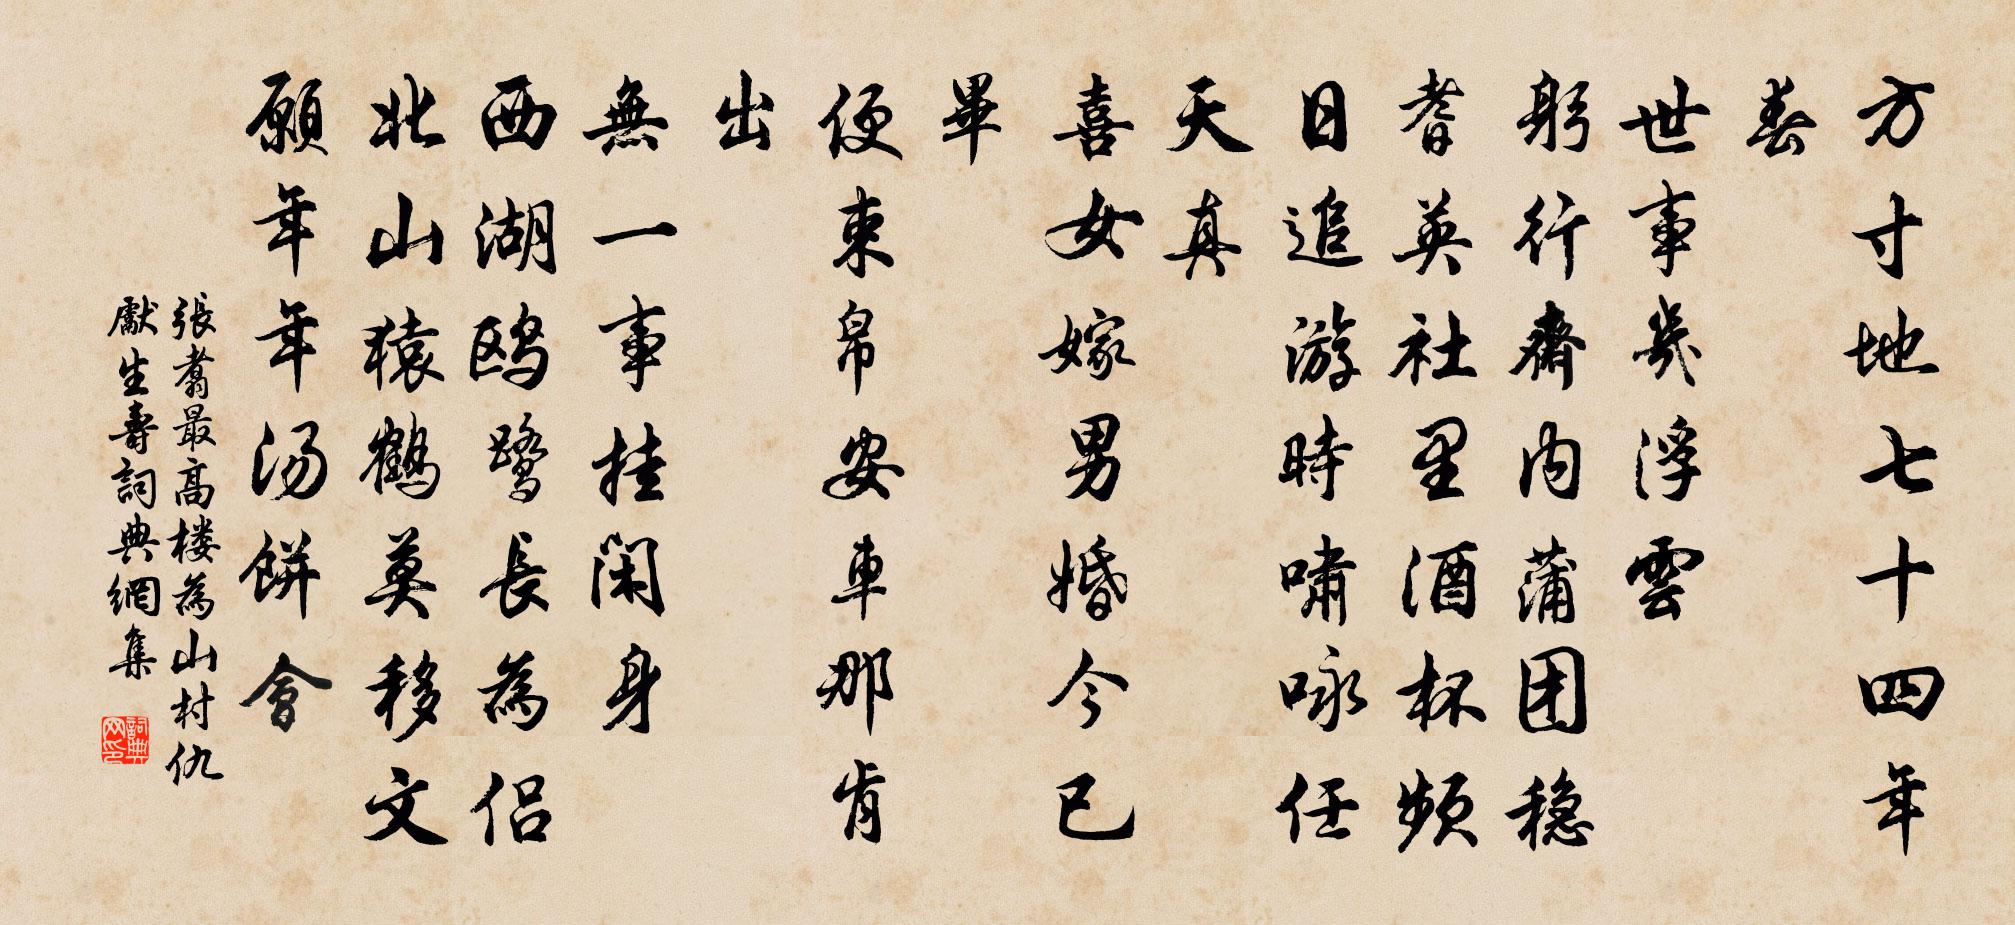 方寸地七十四年
春
世事幾浮雲
躬行齋內蒲团穏
耆英社里酒杯頻
日追游時嘯咏任
天真
喜女嫁男婚今已
畢
便束帛安車那肯
出
無一事挂闲身
西湖鸥鹭長為侣
北山猿鶴莫移文
願年年汤餅會
張翥最高楼為山村仇
獻生壽詞典網集
詞典
网印